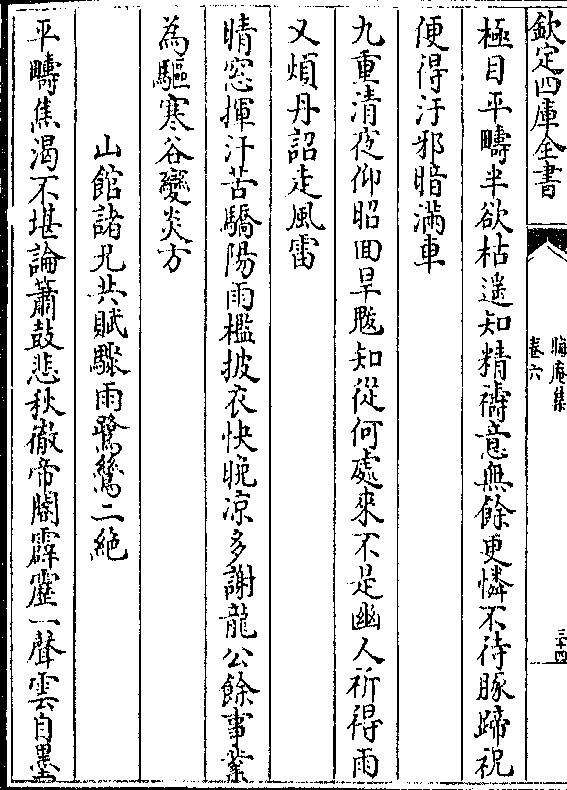 欽定四庫全書
晦庵集
卷六
三十四
極目平疇半欲枯遥知精禱意無餘更憐不待豚蹄祝
便得汙邪暗滿車
九重清夜仰昭回旱魃知從何處來不是幽人祈得雨
又煩丹詔走風雷
晴窓揮汗苦驕陽雨檻披衣快晚凉多謝龍公餘事業
為驅寒谷變炎方
山館諸兄共賦驟雨鷺鷥二絶
平疇焦渴不堪論簫鼓悲秋徹帝閽霹靂一聲雲自墨